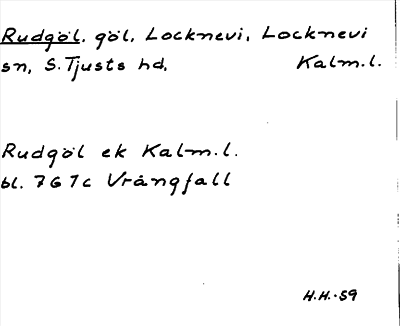 Rudgöl. göl. Locknevi, Locknevi
sn, S. Tjusts hd, Kalm.l.
Rudgöl ek Kalm.l.
bl. 767c Vrångfall
H.H.-59